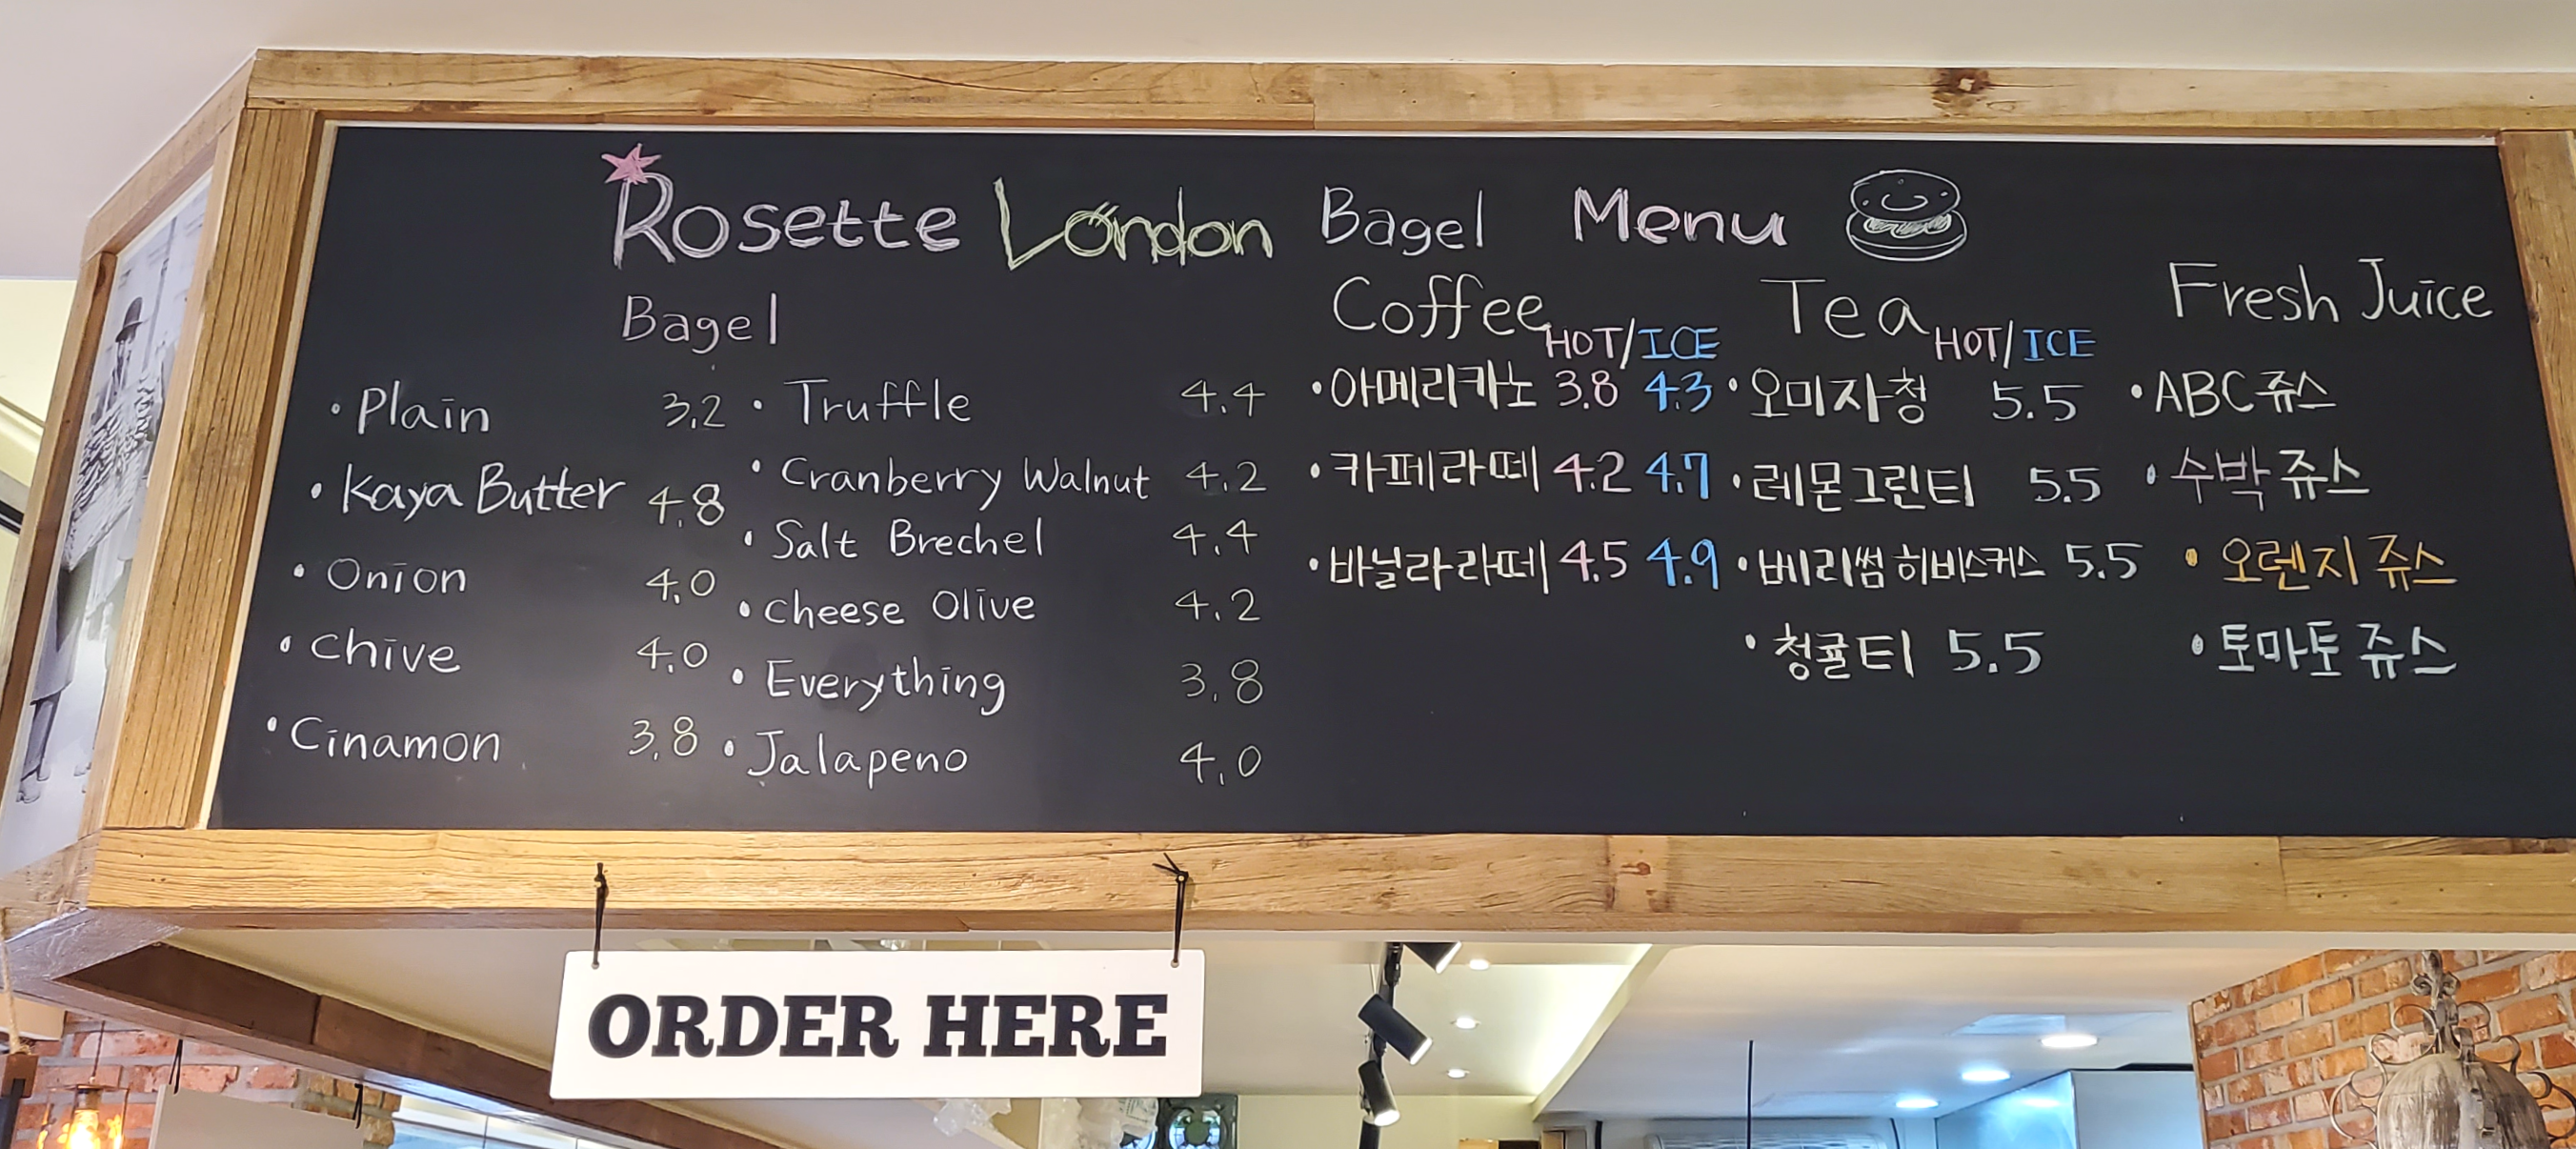 Rosette London Bagel Menu
Bagel
• Plain 3.2
• Kaya Butter 4.8
• Onion 4.0
• Chive 4.0
• Cinamon 3.8
• Truffle 4.4
• Cranberry Walnut 4.2
• Salt Brechel 4.4
• Cheese Olive 4.2
• Everything 3.8
• Jalapeno 4.0
Coffee HOT/ICE
• 아메리카노 3.8 4.3
• 카페라떼 4.2 4.7
• 바닐라라떼 4.5 4.9
Tea HOT/ICE
• 오미자청 5.5
• 레몬그린티 5.5
• 베리썸 히비스커스 5.5
• 청귤티 5.5
Fresh Juice
• ABC 쥬스
• 수박 쥬스
• 오렌지 쥬스
• 토마토 쥬스
ORDER HERE